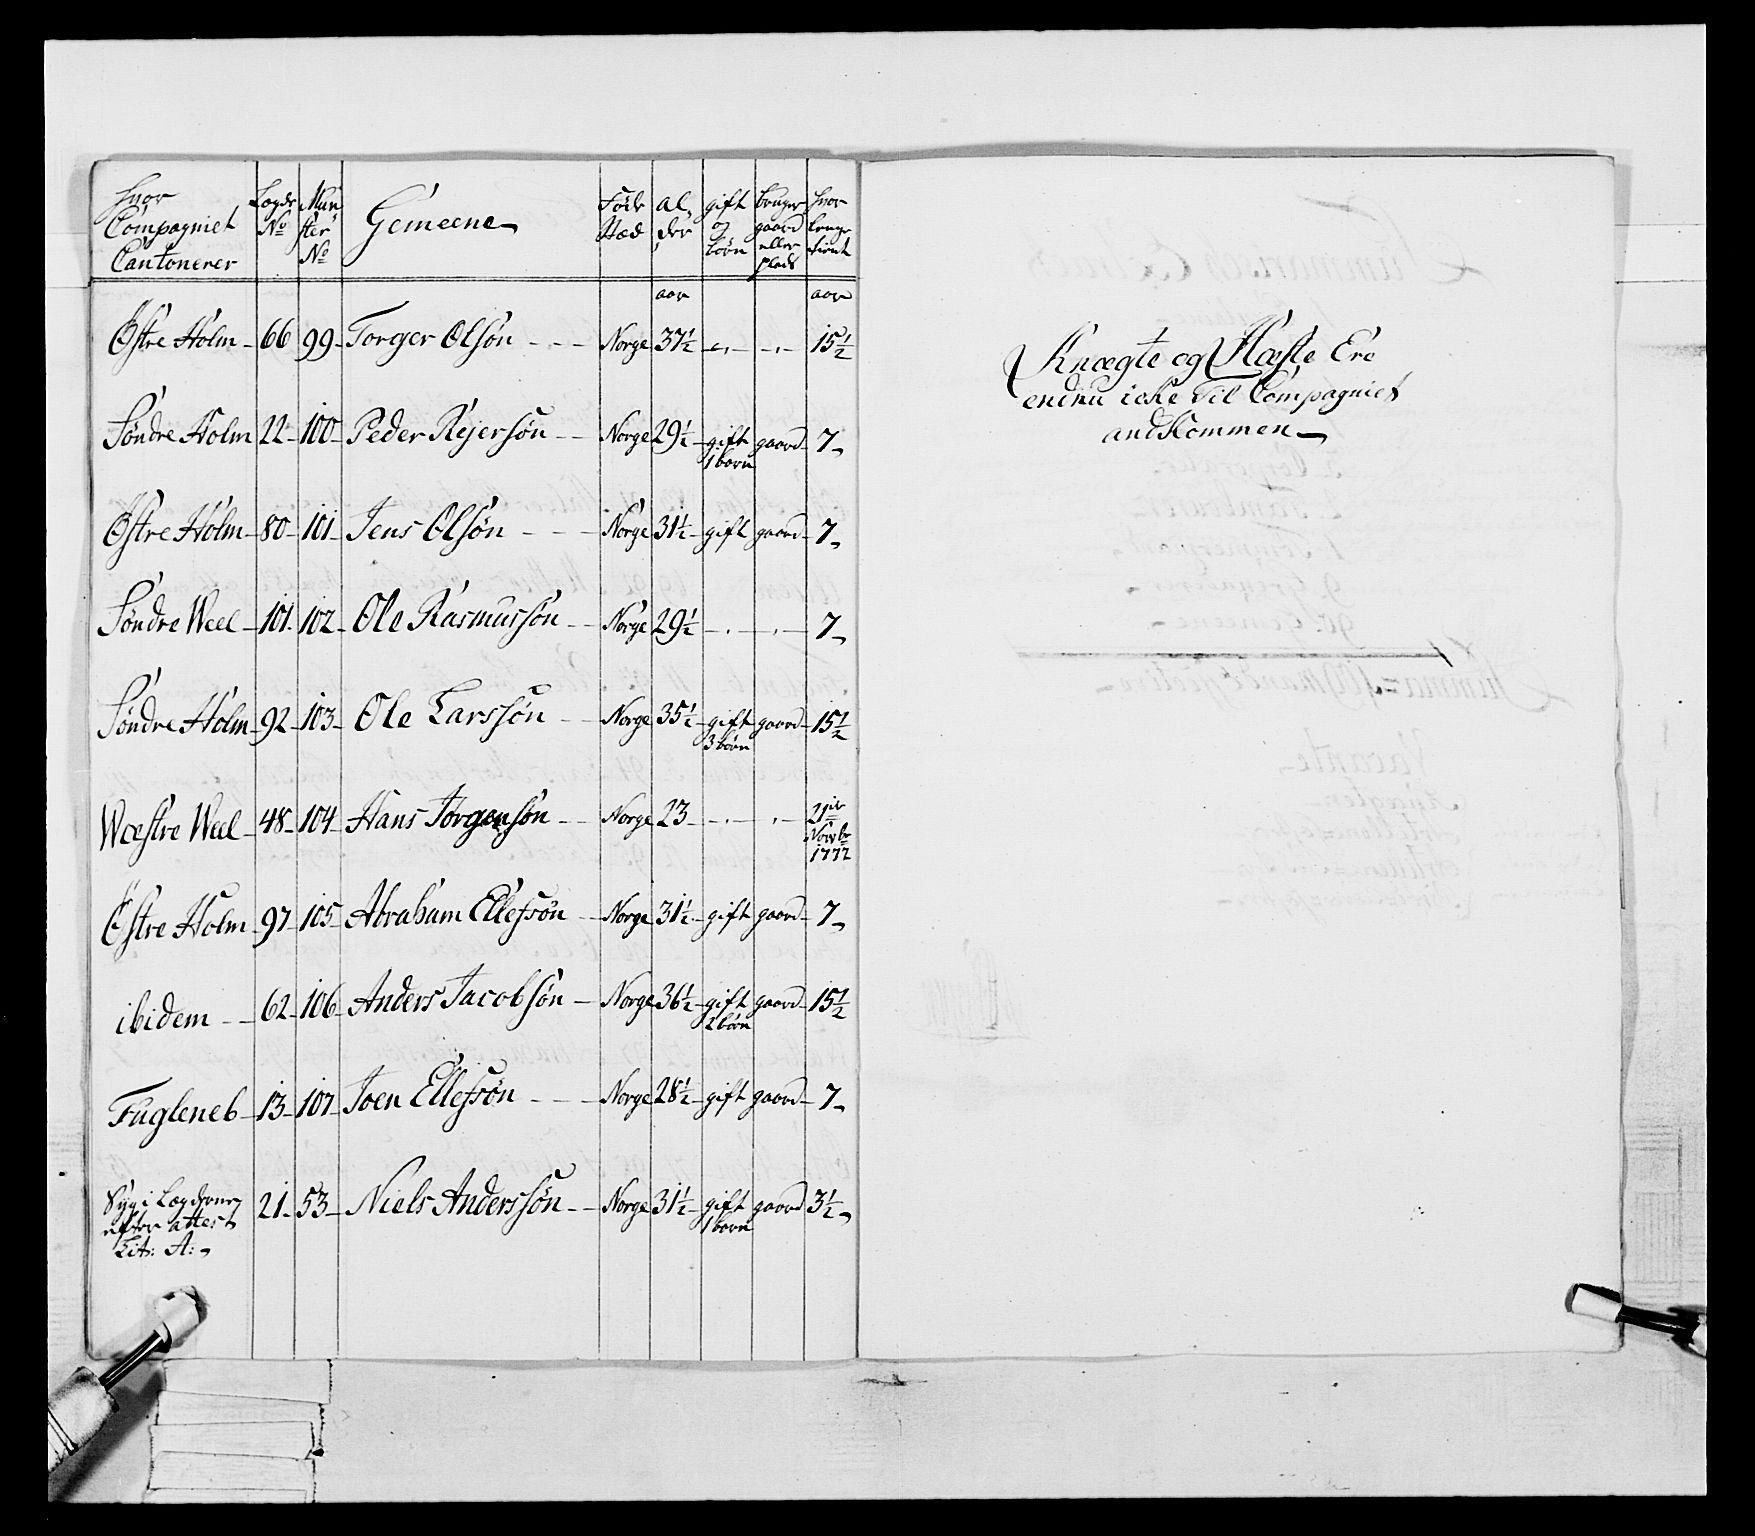 hvor Compagniet Cantonerer | Lægds No | Mynster No | Gemeene | Føde Stæd | alder | gift og børn | bruger gaard eller plads | hvor længe tient
aar | aar
Østre Holm 66 99 Torger Olsøn Norge 37½ 15½
Søndre Holm 22 100 Peder Rejersøn Norge 29½ gift 1 barn gaard 7
Østre Holm 80 101 Jens Olsøn Norge 31½ gift gaard 7
Søndre Weel 101 102 Ole Rasmussøn Norge 29½ 7
Søndre Holm 92 103 Ole Larssøn Norge 35½ gift 3 børn gaard 15½
Wæstre Weel 48 104 Hans Jørgensøn Norge 23 21de Novbr 1772
Østre Holm 97 105 Abraham Ellefsøn Norge 31½ gift gaard 7
ibidem 62 106 Anders Jacobsøn Norge 36½ gift 2 børn gaard 15½
Fugleneb 13 107 Joen Ellefsøn Norge 28½ gift gaard 7
Syg i Lægderne efter attest Litr: A: 21 53 Niels Anderssøn Norge 31½ gift 1 barn gaard 3½
Knægte og Hæste Ere
endnu icke til Compagniet
andkommen